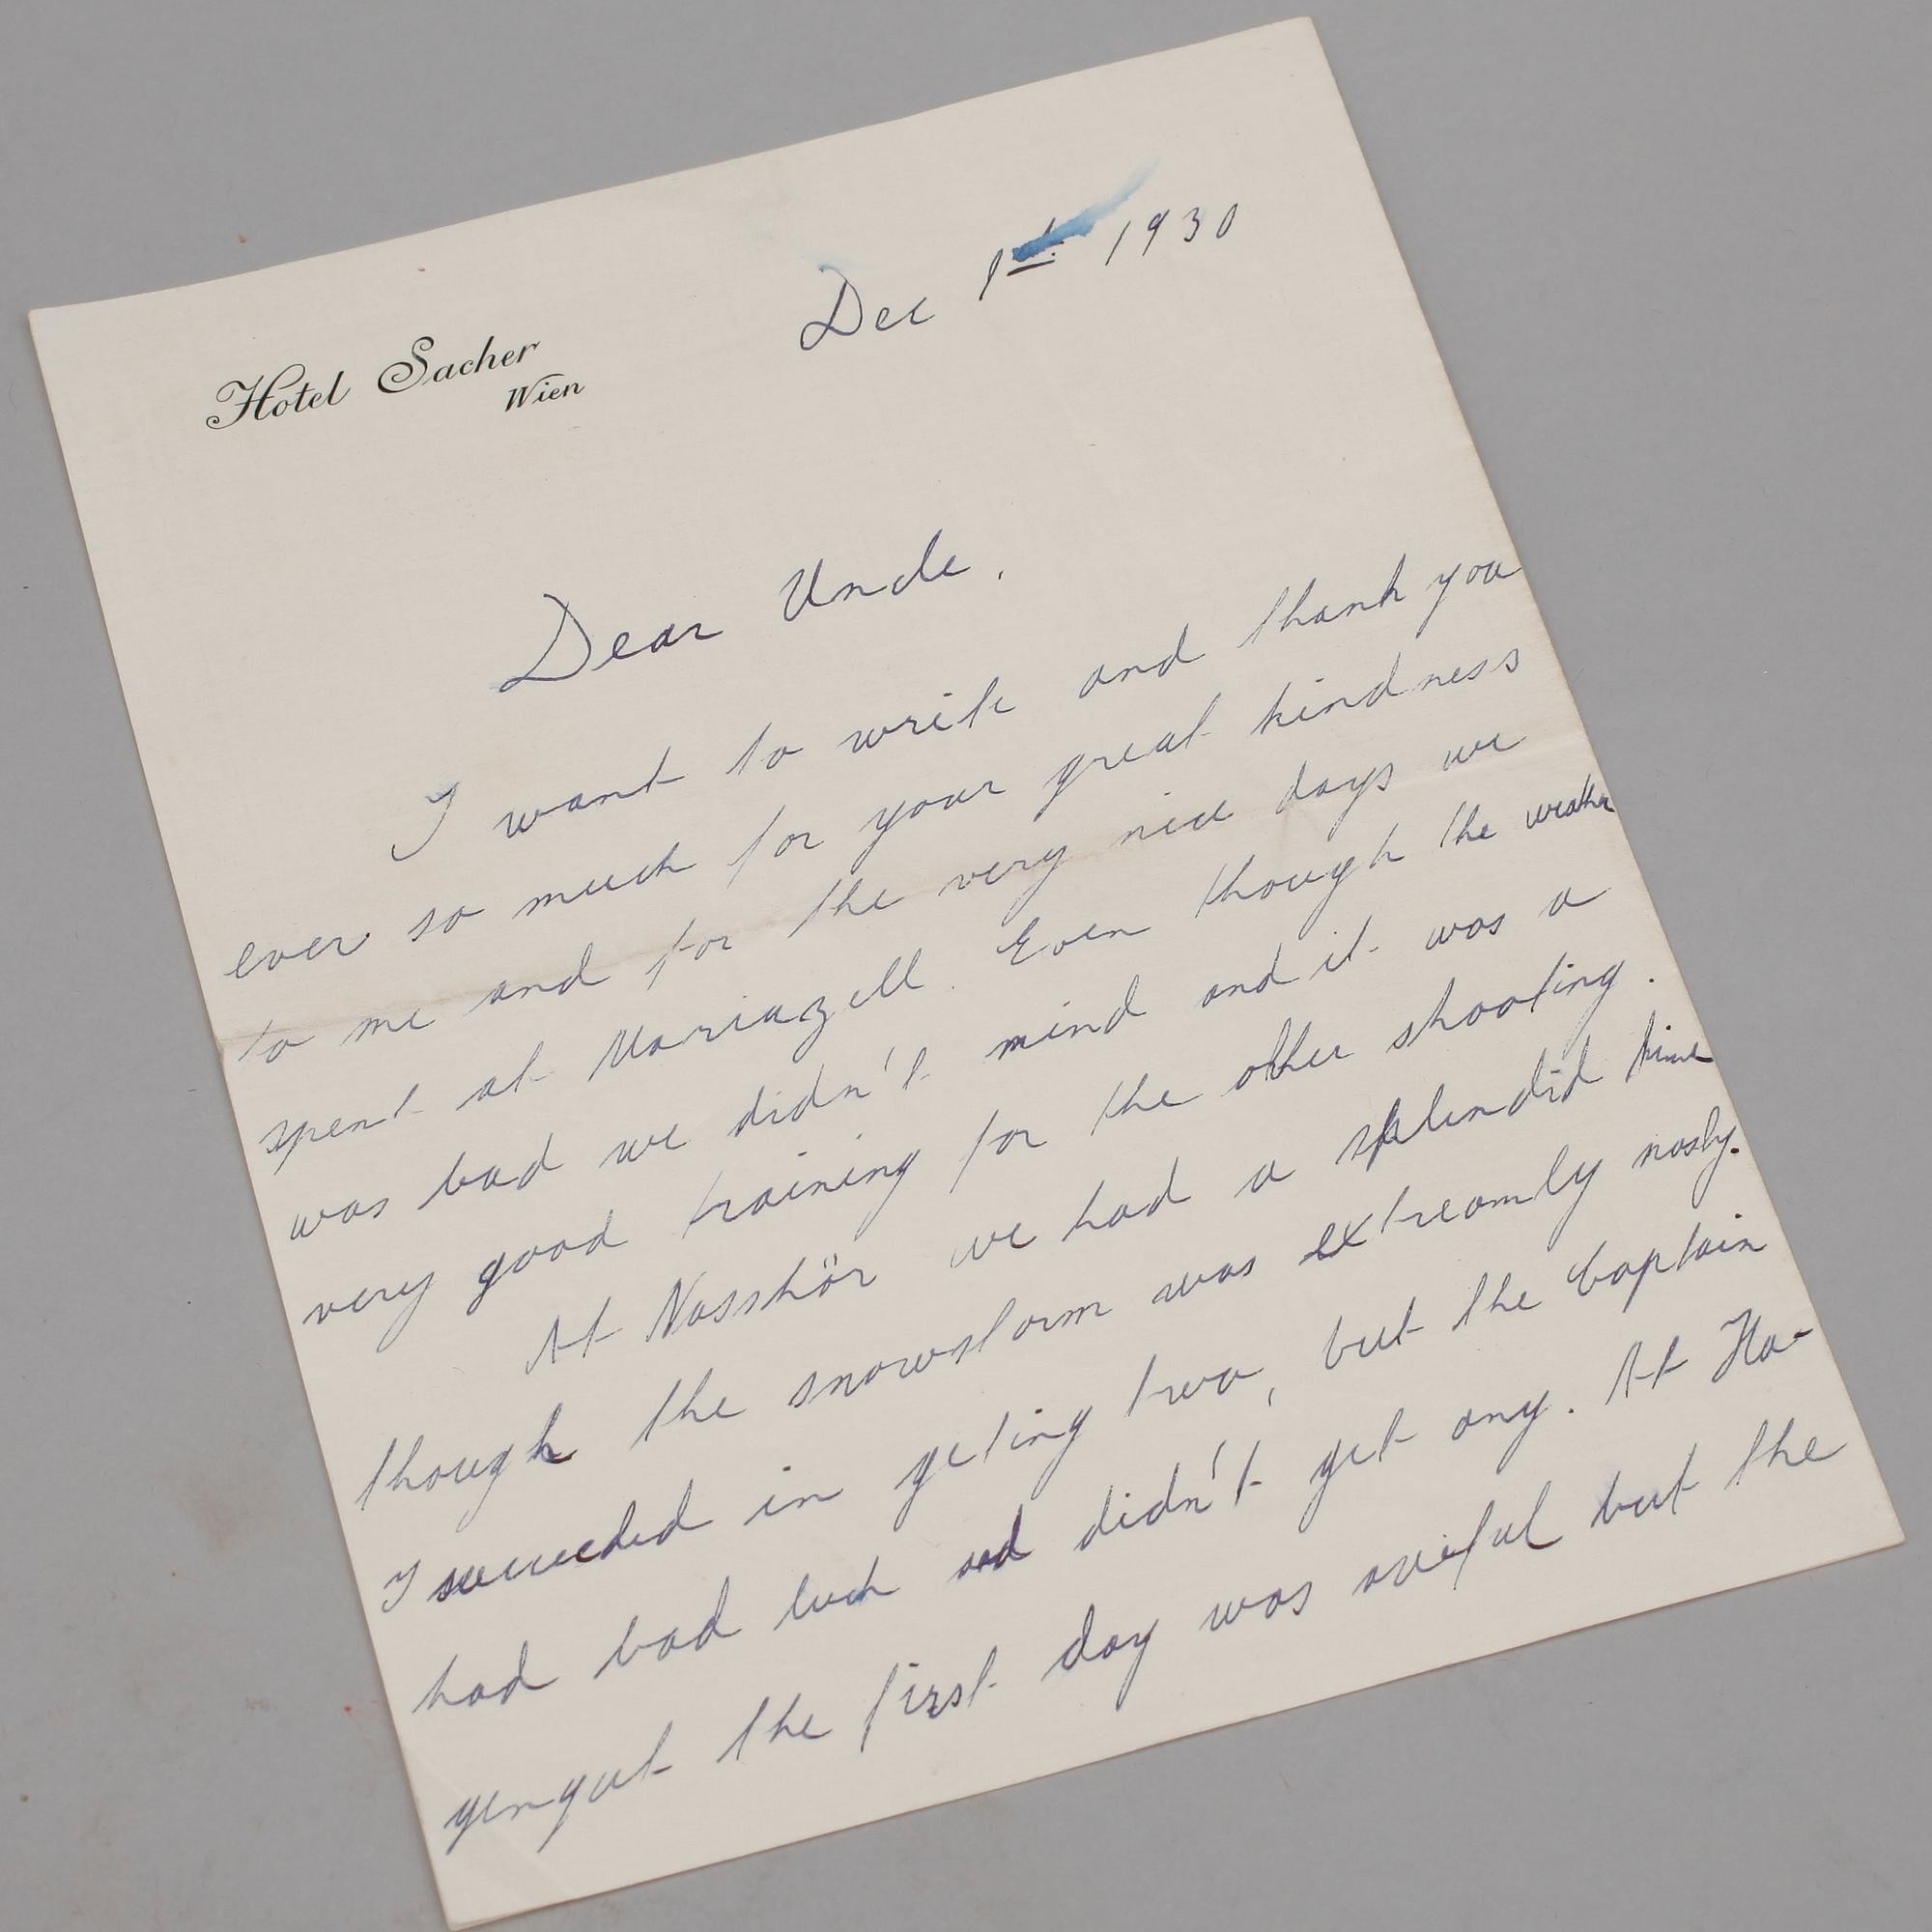 Dec 1st 1930
Hotel Sacher
Wien
Dear Uncle,
I want to write and thank you
ever so much for your great kindness
to me and for the very nice days we
spent at Mariazell. Even though the weather
was bad we didn't mind and it was a
very good training for the other shooting.
At Nasskör we had a splendid time
though the snowstorm was extreamly nasty.
I succeeded in geting two, but the Captain
had bad luck and didn't get any. At Ha-
gengut the first day was awful but the